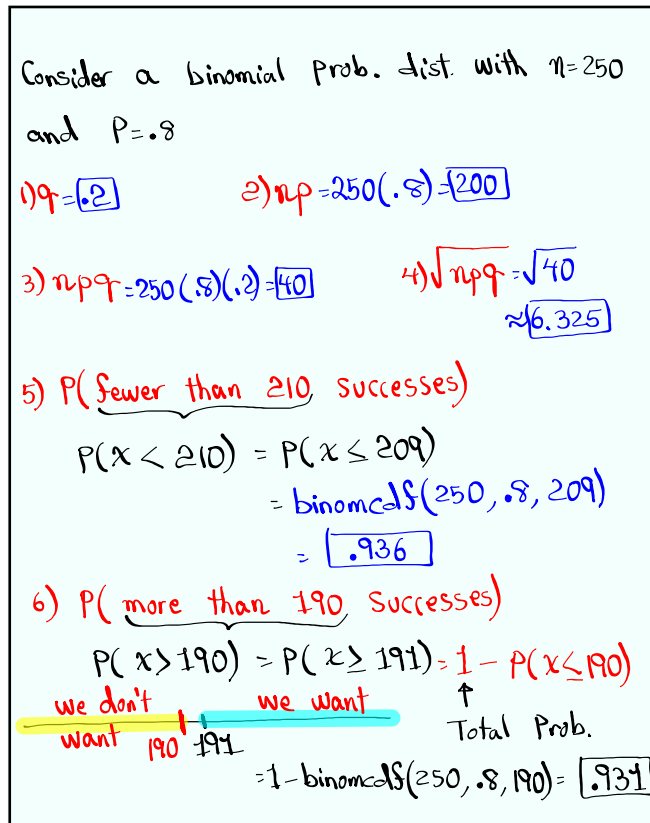 Consider a binomial Prob. dist. with n=250
and P=.8
1) q=.2 2) np=250(.8)=200
3) npq=250(.8)(.2)=40 4) √npq=√40
≈6.325
5) P(fewer than 210 successes)
P(x < 210) = P(x ≤ 209)
= binomcdf(250, .8, 209)
= .936
6) P(more than 190 Successes)
P(x > 190) = P(x ≥ 191) = 1 - P(x ≤ 190)
we don't we want
want 190 191 Total Prob.
=1-binomcdf(250, .8, 190)= .931